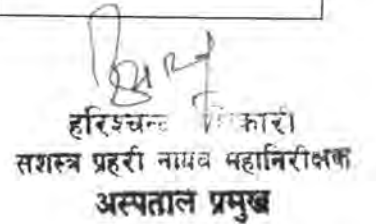 हरिश्चन्द्र
सशस्त्र प्रहरी नायब महानिरीक्षक
अस्पताल प्रमुख